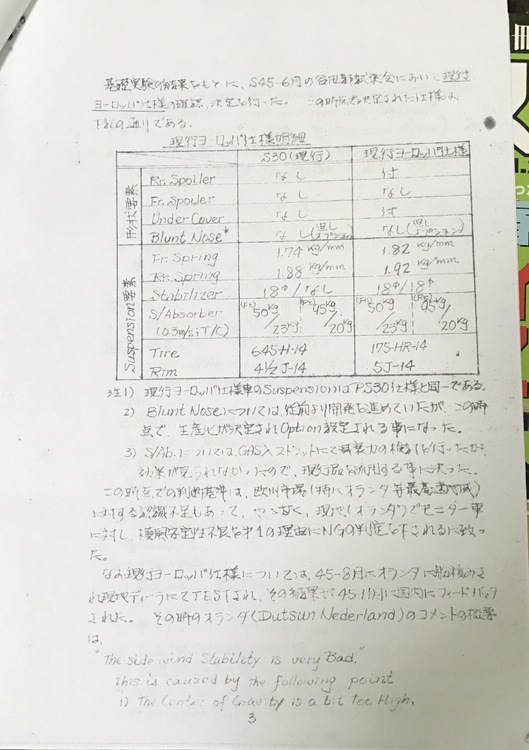 基礎実験の結果をもとに、S45-6月の谷田部試乗会において現行
ヨーロッパ仕様の確認、決定を行った。 この時点で決定された仕様は、
下記の通りである。
現行ヨーロッパ仕様明細
S30(現行) 現行ヨーロッパ仕様
形状要素
Rr. Spoiler なし 付
Fr. Spoiler なし なし
Under Cover なし 付
Blunt Nose* なし(但しオプション) なし(但しオプション)
Suspension要素
Fr. Spring 1.74 kg/mm 1.82 kg/mm
Rr. Spring 1.88 kg/mm 1.92 kg/mm
Stabilizer 18φ/なし 18φ/18φ
S/Absorber (Fr) 50kg/23kg (Rr) 45kg/20kg (Fr) 50kg/23kg (Rr) 45kg/20kg
(0.3m/s T/C)
Tire 645-H-14 175-HR-14
Rim 4½J-14 5J-14
注1) 現行ヨーロッパ仕様車のSuspensionはPS30仕様と同一である。
2) Blunt Noseについては、従前より開発を進めていたが、この時
点で、生産化が決定されOption設定される事になった。
3) S/Ab.については、GAS入ストラットにて減衰力の検討を行ったが、
効果が見られなかったので、現行品を流用する事に決った。
この時点での判断基準は、欧州市場(特にオランダ等最高速
に対する認識不足もあって、 現地(オランダ)でモニター車
に対し、横風安定性不良を第1の理由にNGの判定を下されるに致っ
た。
なお現行ヨーロッパ仕様については、45-8月にオランダに船積みさ
れ現地ディーラにてTESTされ、その結果が45-11月に国内にフィードバック
された。 その時のオランダ(Dutsun Nederland)のコメントの概要
は、
"The side wind Stability is very Bad,"
This is caused by the following point
1) The Center of Gravity is a bit Too High.
3